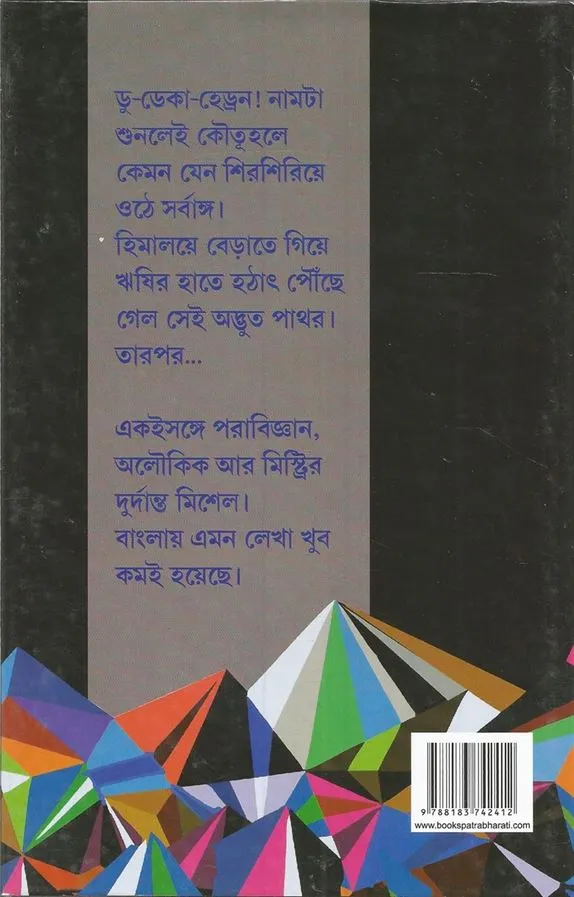 ডু-ডেকা-হেড্রন! নামটা
শুনলেই কৌতূহলে
কেমন যেন শিরশিরিয়ে
ওঠে সর্বাঙ্গ।
হিমালয়ে বেড়াতে গিয়ে
ঋষির হাতে হঠাৎ পৌঁছে
গেল সেই অদ্ভুত পাথর।
তারপর...
একইসঙ্গে পরাবিজ্ঞান,
অলৌকিক আর মিস্ট্রির
দুর্দান্ত মিশেল।
বাংলায় এমন লেখা খুব
কমই হয়েছে।
9 788183 742412
www.bookspatrabharati.com